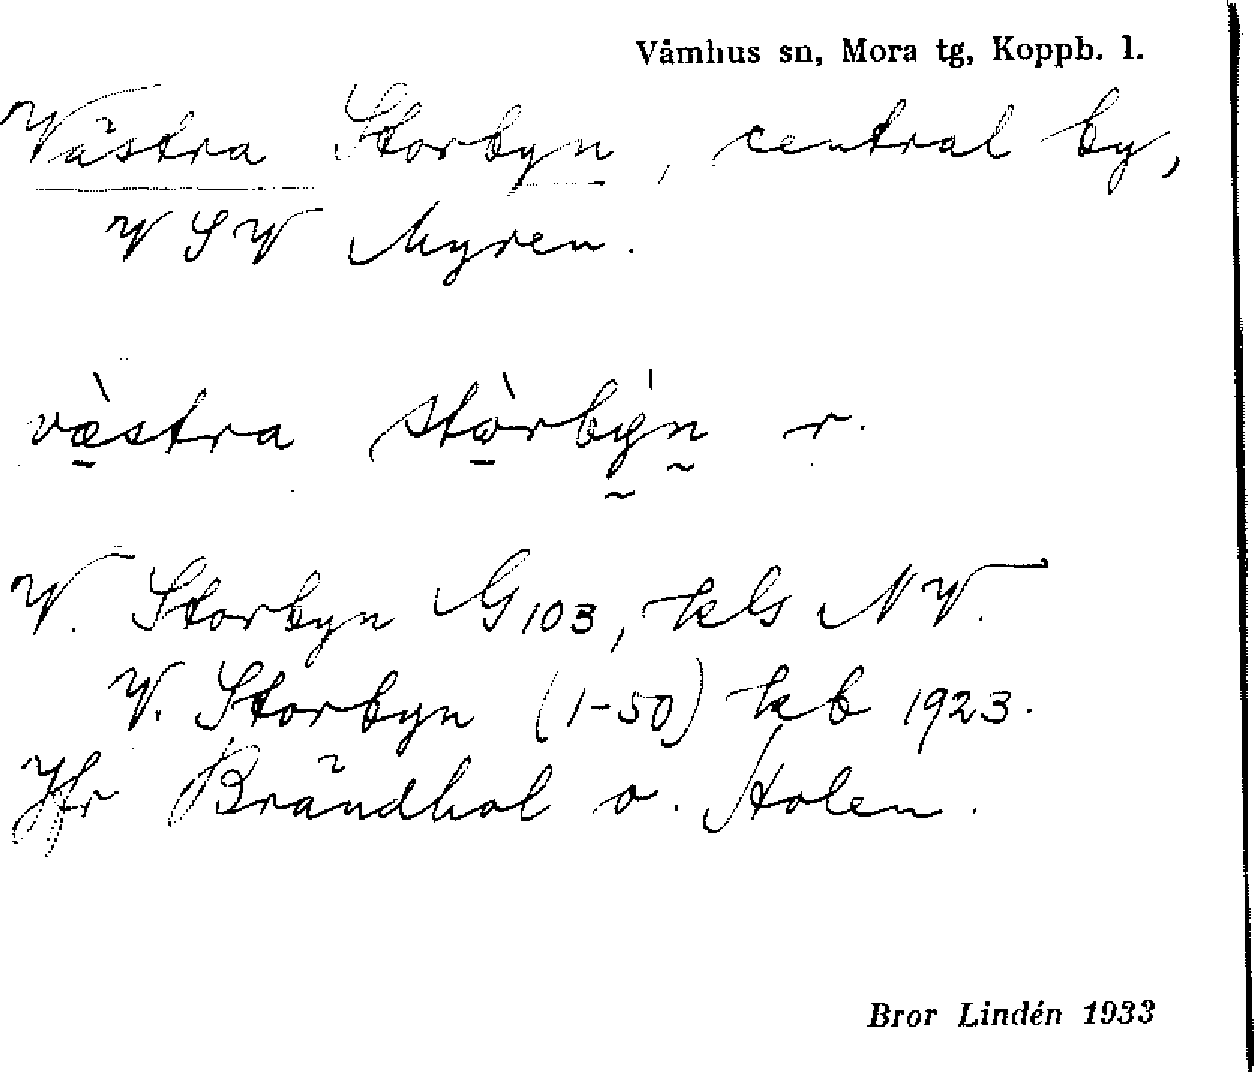 Våmhus sn, Mora tg, Koppb. l.
Västra Storbyn, central by,
VSV Myren.
væ̀stra stòrbýn r.
V. Storbyn G103, kls NV.
V. Storbyn (1-50) kb 1923.
Jfr Brändhol o. Holen.
Bror Lindén 1933